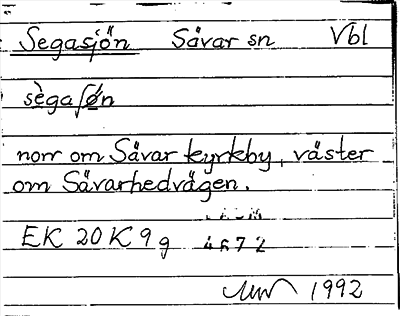 Segasjön Sävar sn Vbl
sègaʃø̀n
norr om Sävar kyrkby, väster
om Sävarhedvägen.
EK 20 K 9 g 4672
1992